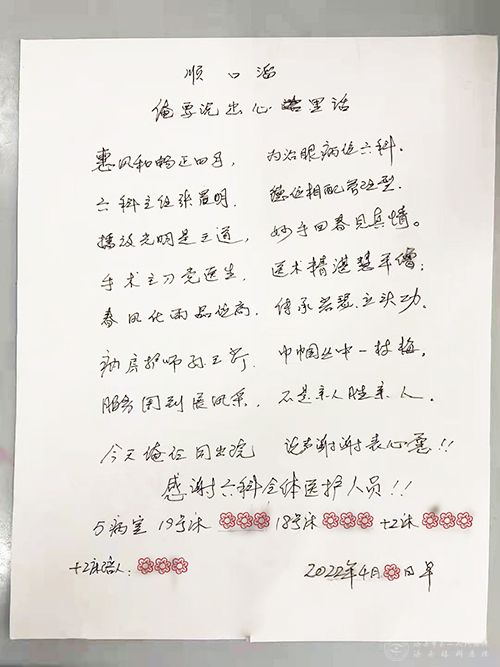 顺口溜
俺要说出心里话
惠风和畅正四月, 为治眼病住六科.
六科主任张晨明. 德位相配管理型.
播放光明是王道, 妙手回春见真情。
手术主刀党医生, 医术精湛慧年俊;
春风化雨品位高, 传承岩琴立头功.
病房护师孙玉芹, 巾帼丛中一枝梅,
服务周到展风采, 不是亲人胜亲人.
今天俺从同出院 说声谢谢表心意!!
感谢六科全体医护人员!!
5病室 19号床 18号床 +2床
+2床陪人:
2022年4月 日 早